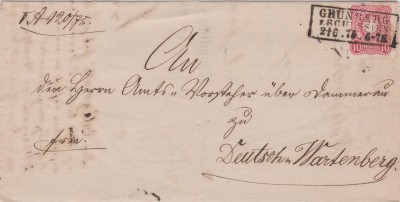 V. A 420/75.
GRÜNBERG
I. SCHL.
2 6. 75. 6-7N.
10
An
den Herrn Amts=Vorsteher über Dammerau
frei.
zu
Deutsch=Wartenberg.